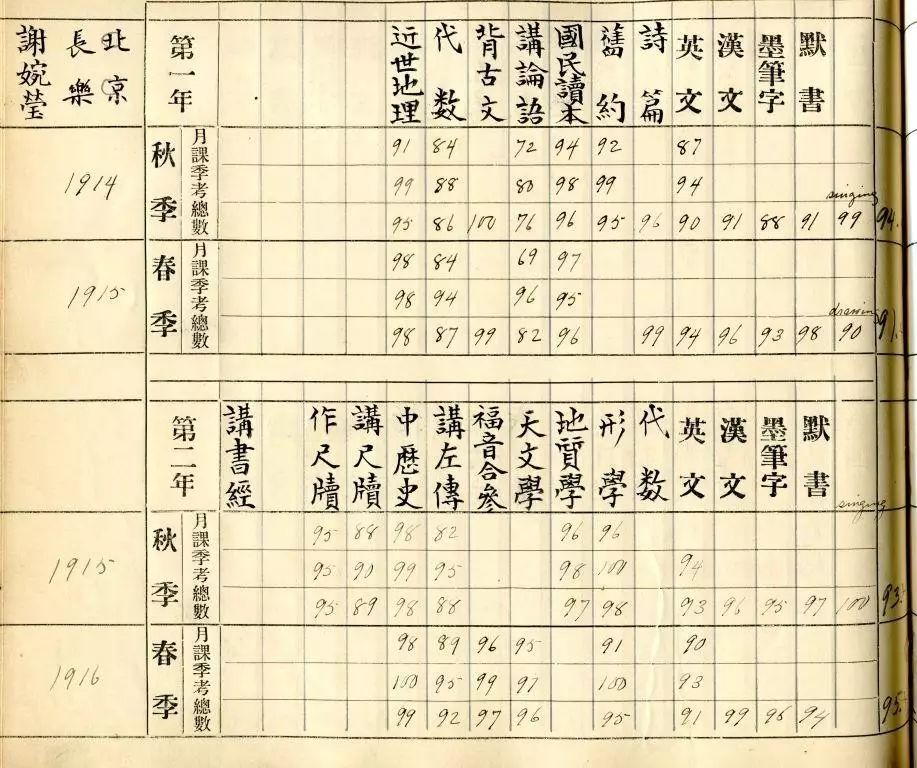 北京
長樂
謝婉瑩
第一年 近世地理 代数 背古文 講論語 國民讀本 舊約 詩篇 英文 漢文 墨筆字 默書
1914 秋季
月課 91 84 72 94 92 87
季考 99 88 80 98 99 94
singing
總數 95 86 100 76 96 95 96 90 91 88 91 99 94.
1915 春季
月課 98 84 69 97
季考 98 94 96 95
drawing
總數 98 87 99 82 96 99 94 96 93 98 90 91.
第二年 講書經 作尺牘 講尺牘 中歷史 講左傳 福音合參 天文學 地質學 形學 代数 英文 漢文 墨筆字 默書
singing
1915 秋季
月課 95 88 98 82 96 96
季考 95 90 99 95 98 100 94
總數 95 89 98 88 97 98 93 96 95 97 100 93.
1916 春季
月課 98 89 96 95 91 90
季考 100 95 99 97 100 93
總數 99 92 97 96 95 91 99 96 94 95.